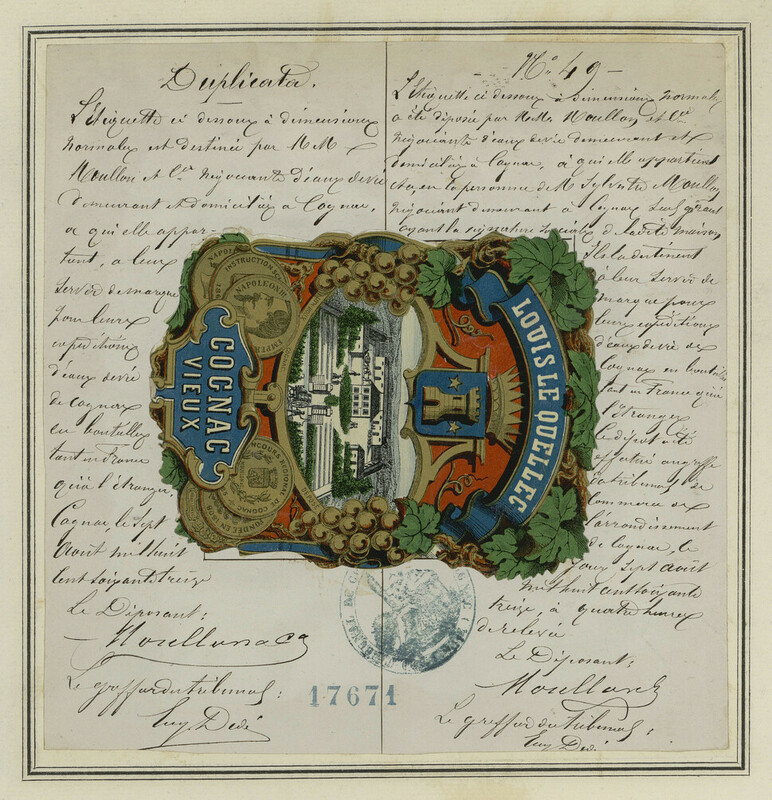 Duplicata.
L'Etiquette ci dessous à dimensions
normales est destinée par MM
Moullon et Cie Négociants d'eaux devie
demeurant et domiciliés à Cognac,
a qui elle appar-
tient, a leur
servir de marque
pour leurs
expéditions
d'eaux devie
de cognac
en bouteilles
tant en France
qu'à l'étranger.
Cognac, le sept
Août mil huit
cent soixante treize
Le Déposant:
Moullon & Cie
Le greffier du tribunal:
No 49
L'Etiquette ci dessous à dimensions normales
a été déposée par M.M. Moullon et Cie
Négociants d'eaux devie demeurant et
domiciliés à Cognac, à qui elle appartient
en la personne de M. Sylvestre Moullon
Négociant demeurant à Cognac seul gérant
ayant la signature sociale de ladite maison
Ils la destinent
à leur servir de
marque pour
leurs expéditions
d'eaux devie de
Cognac en bouteilles
tant en France qu'à
l'étranger
le dépôt a été
effectué au greffe
du tribunal de
Commerce de
l'arrondissement
de Cognac, le
jour sept août
mil huit cent soixante
treize, à quatre heures
de relevée
Le Déposant:
Moullon &
Le greffier du tribunal:
LOUIS LE QUELLEC
COGNAC
VIEUX
NAPOLEON III
EMPER
CONCOURS REGIONAL DE COGNAC
FONDÉE EN 1808
17671